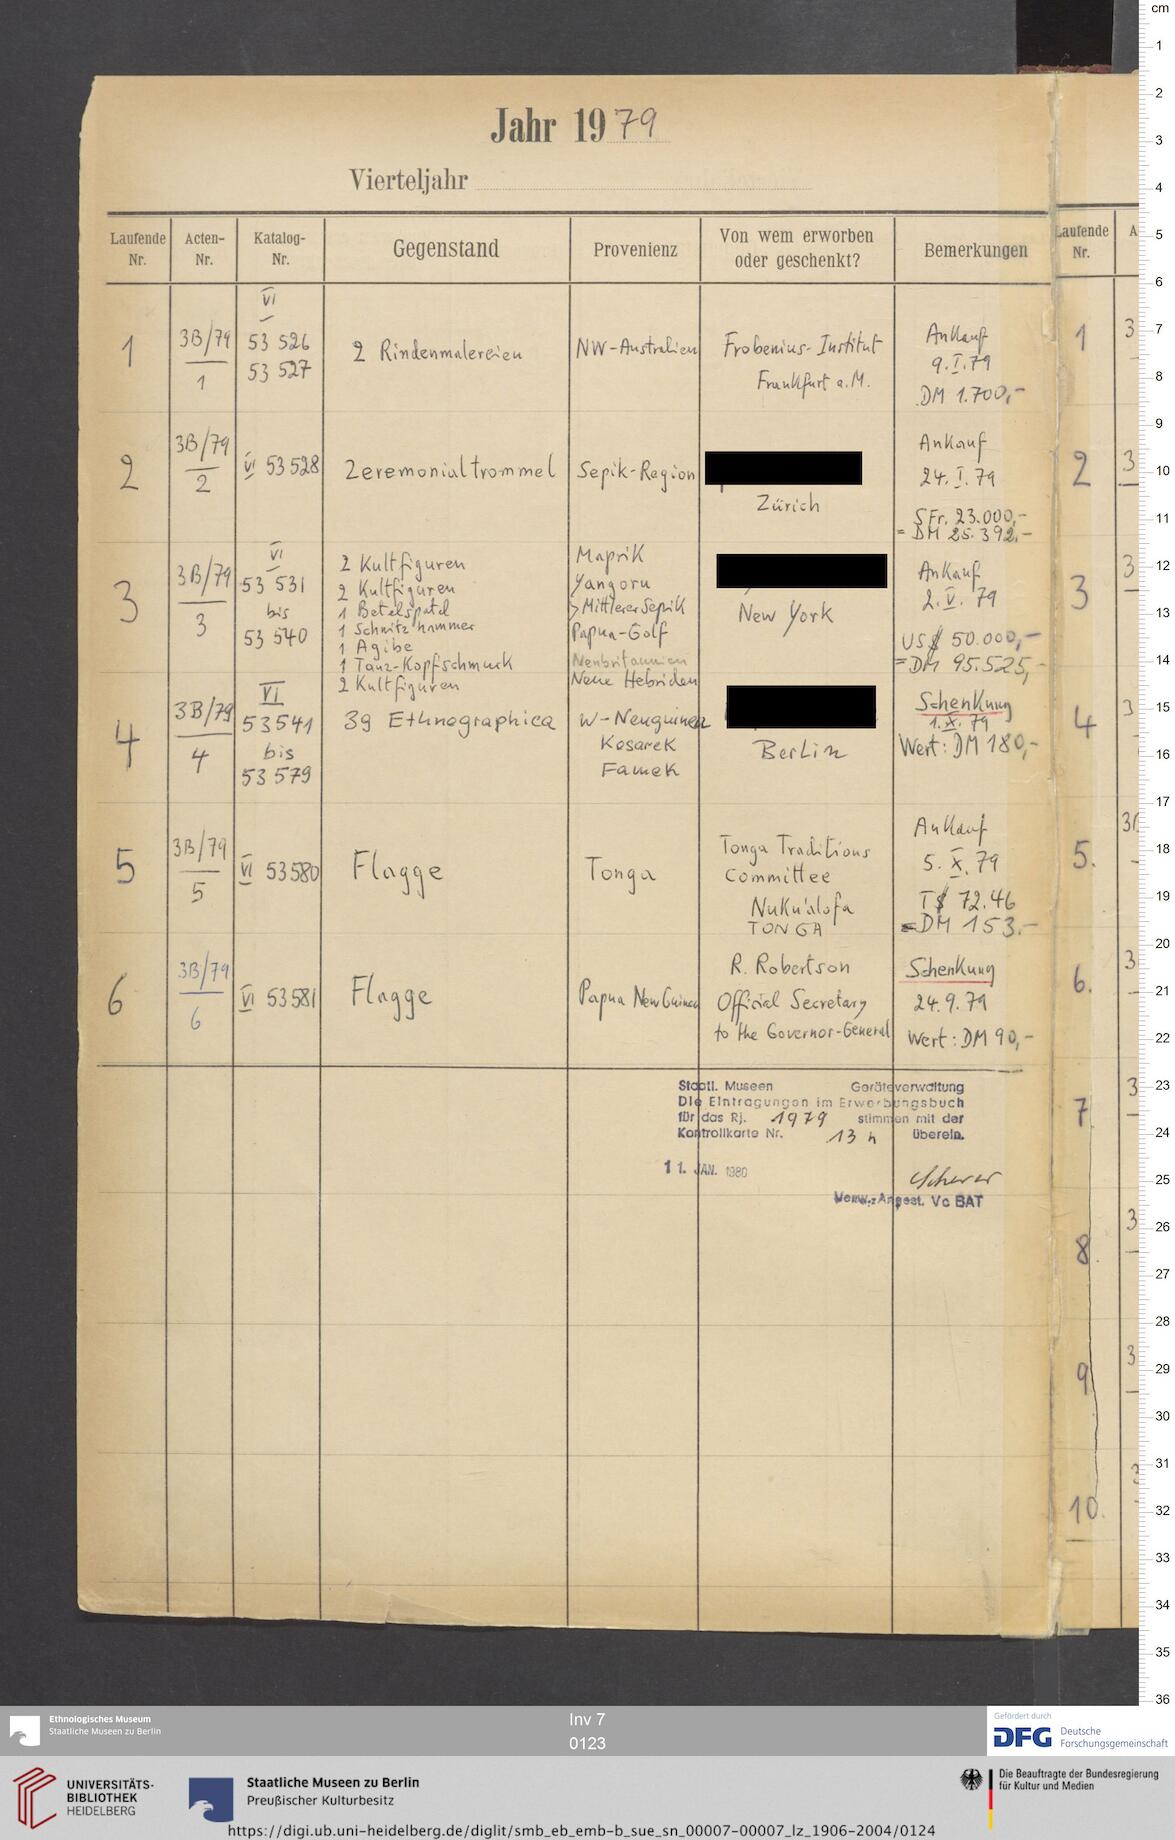 Jahr 1979
Vierteljahr
Laufende Nr. Acten-Nr. Katalog-Nr. Gegenstand Provenienz Von wem erworben oder geschenkt? Bemerkungen
1 3B/79 1 VI 53 526 53 527 2 Rindenmalereien NW-Australien Frobenius-Institut Frankfurt a.M. Ankauf 9.I.79 DM 1.700,-
2 3B/79 2 VI 53 528 Zeremonialtrommel Sepik-Region Zürich Ankauf 24.I.79 SFr. 23.000,- = DM 25.392,-
3 3B/79 3 VI 53 531 bis 53 540
2 Kultfiguren Maprik
2 Kultfiguren Yangoru
1 Betelspatel > Mittlerer Sepik
1 Schnitzhammer
1 Agibe Papua-Golf
1 Tanz-Kopfschmuck Neubritannien
2 Kultfiguren Neue Hebriden
New York Ankauf 2.V.79 US$ 50.000,- = DM 95.525,-
4 3B/79 4 VI 53541 bis 53579 39 Ethnographica W-Neuguinea Kosarek Famek Berlin Schenkung 1.X.79 Wert: DM 180,-
5 3B/79 5 VI 53580 Flagge Tonga Tonga Traditions Committee Nuku'alofa TONGA Ankauf 5.X.79 T$ 72.46 = DM 153.-
6 3B/79 6 VI 53581 Flagge Papua New Guinea R. Robertson Official Secretary to the Governor-General Schenkung 24.9.79 Wert: DM 90,-
Staatl. Museen Geräteverwaltung
Die Eintragungen im Erwerbungsbuch
für das Rj. 1979 stimmen mit der
Kontrollkarte Nr. 13 h überein.
11. JAN. 1980
Scherer
Verw.-Angest. Vc BAT
Laufende Nr. A
1 3
2 3
3 3
4 3
5. 3
6. 3
7 3
8 3
9 3
10. 3
cm
1
2
3
4
5
6
7
8
9
10
11
12
13
14
15
16
17
18
19
20
21
22
23
24
25
26
27
28
29
30
31
32
33
34
35
36
Ethnologisches Museum
Staatliche Museen zu Berlin
Inv 7
0123
Gefördert durch
DFG Deutsche Forschungsgemeinschaft
UNIVERSITÄTS-
BIBLIOTHEK
HEIDELBERG
Staatliche Museen zu Berlin
Preußischer Kulturbesitz
Die Beauftragte der Bundesregierung
für Kultur und Medien
https://digi.ub.uni-heidelberg.de/diglit/smb_eb_emb-b_sue_sn_00007-00007_lz_1906-2004/0124